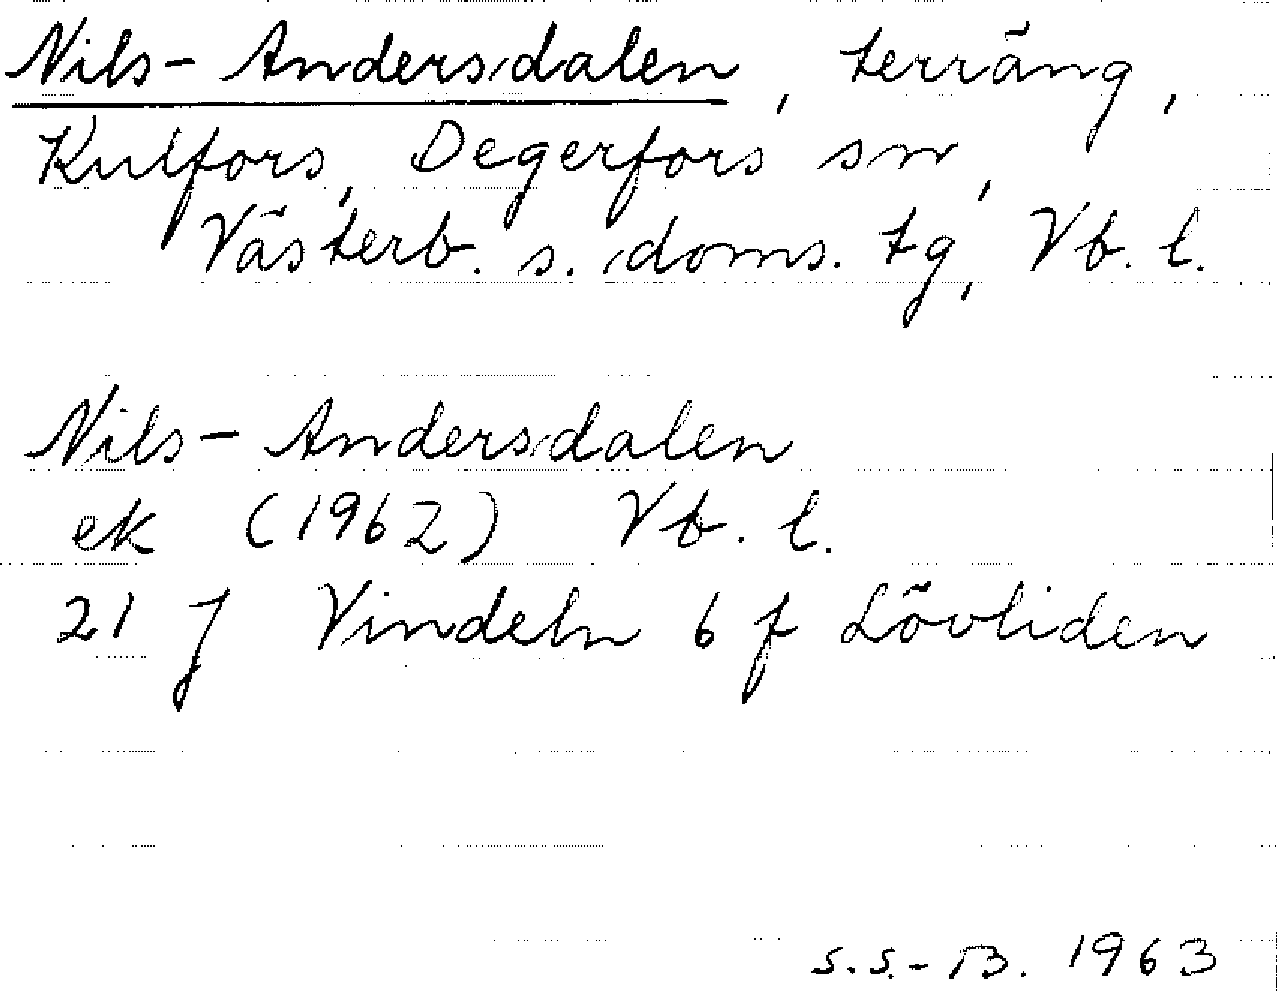 Nils-Andersdalen, terräng,
Kulfors, Degerfors sn,
Västerb. s. doms. tg, Vb. l.
Nils-Andersdalen
ek (1962) Vb. l.
21 J Vindeln 6 f Lövliden
S.S.-B. 1963